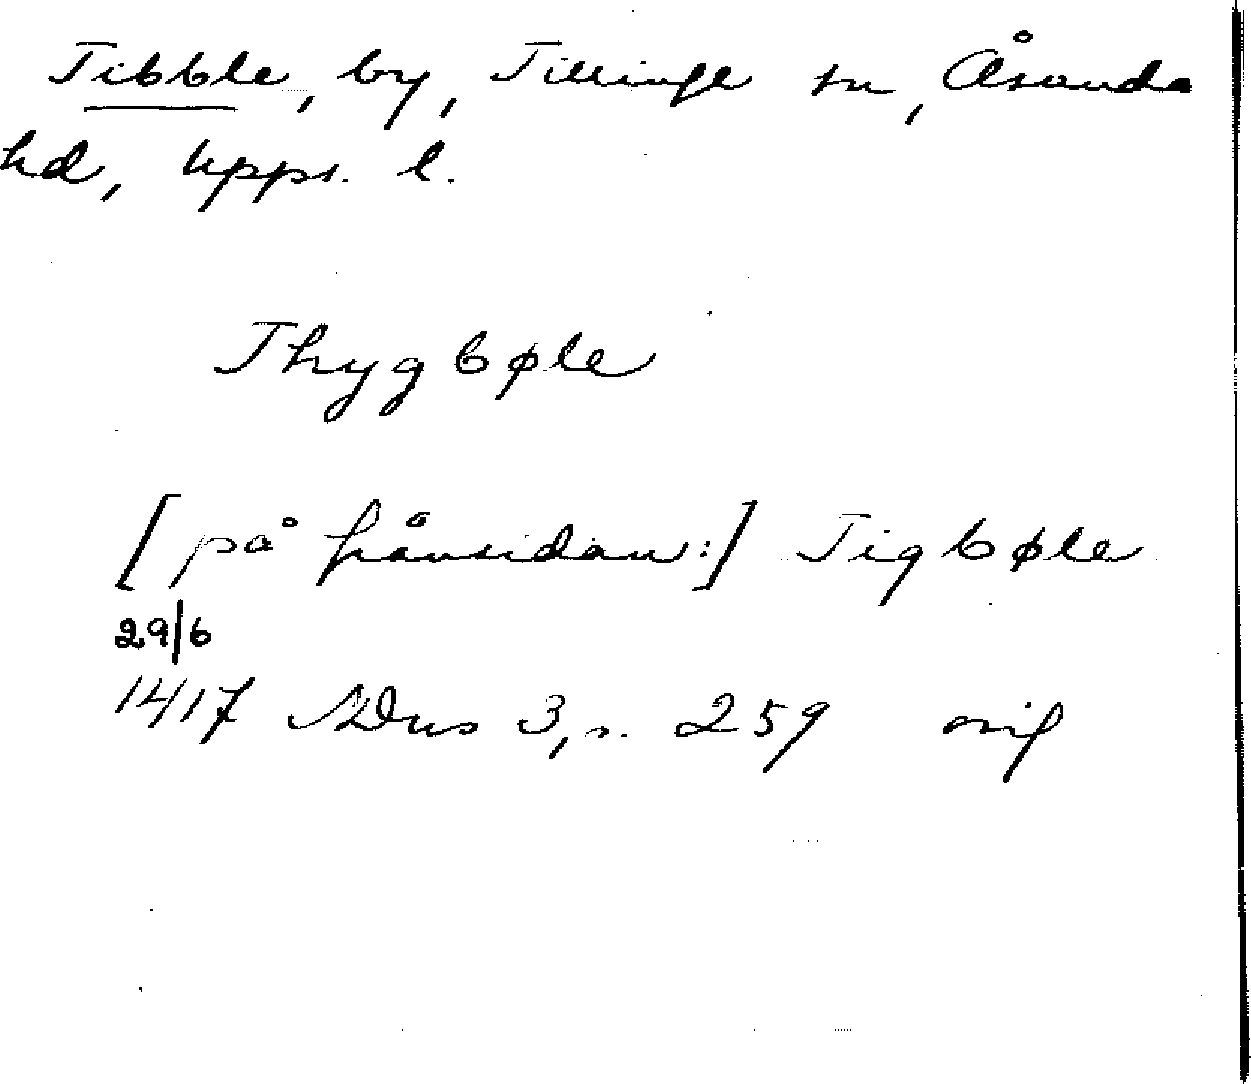 Tibble, by, Tillinge sn, Åsunda
hd, Upps. l.
Thygbøle
[på frånsidan:] Tigbøle
29/6
1417 SDns 3, s. 259 orig